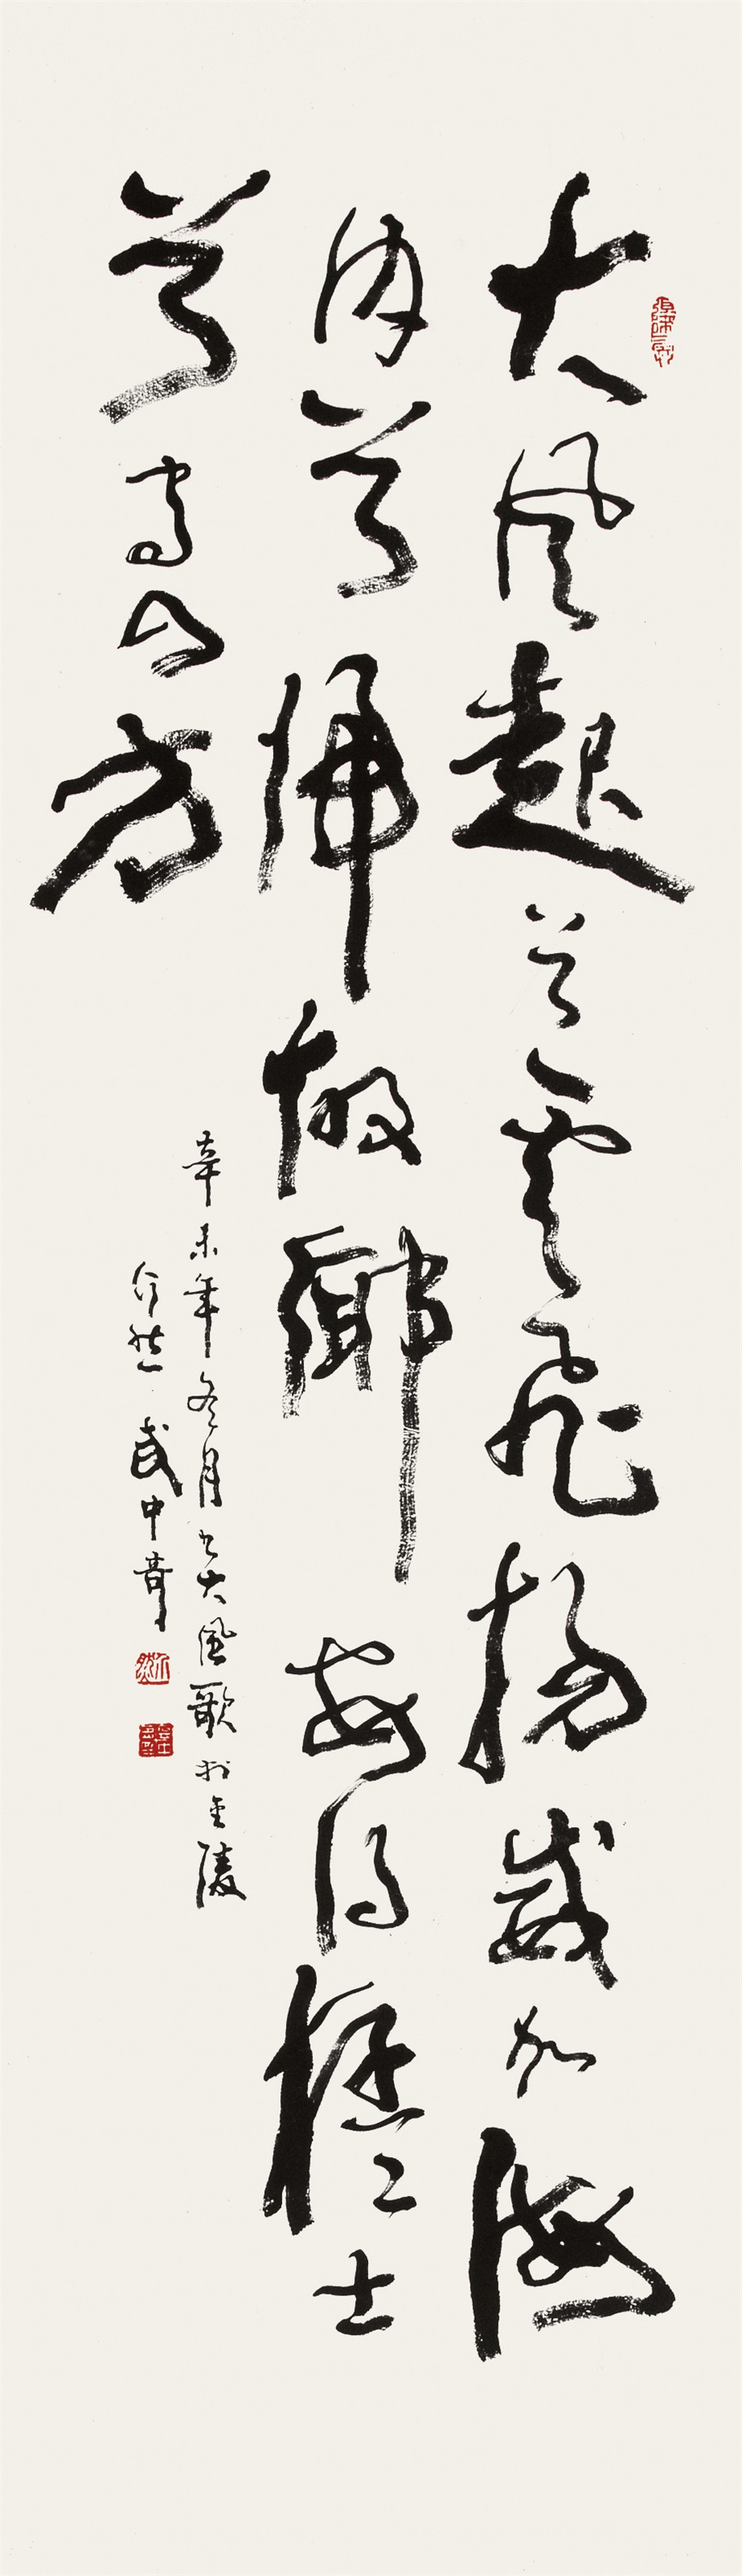 大风起兮云飞扬威加海
内兮归故鄉安得猛士
兮守四方
辛未年冬月书大風歌於金陵
介然武中奇